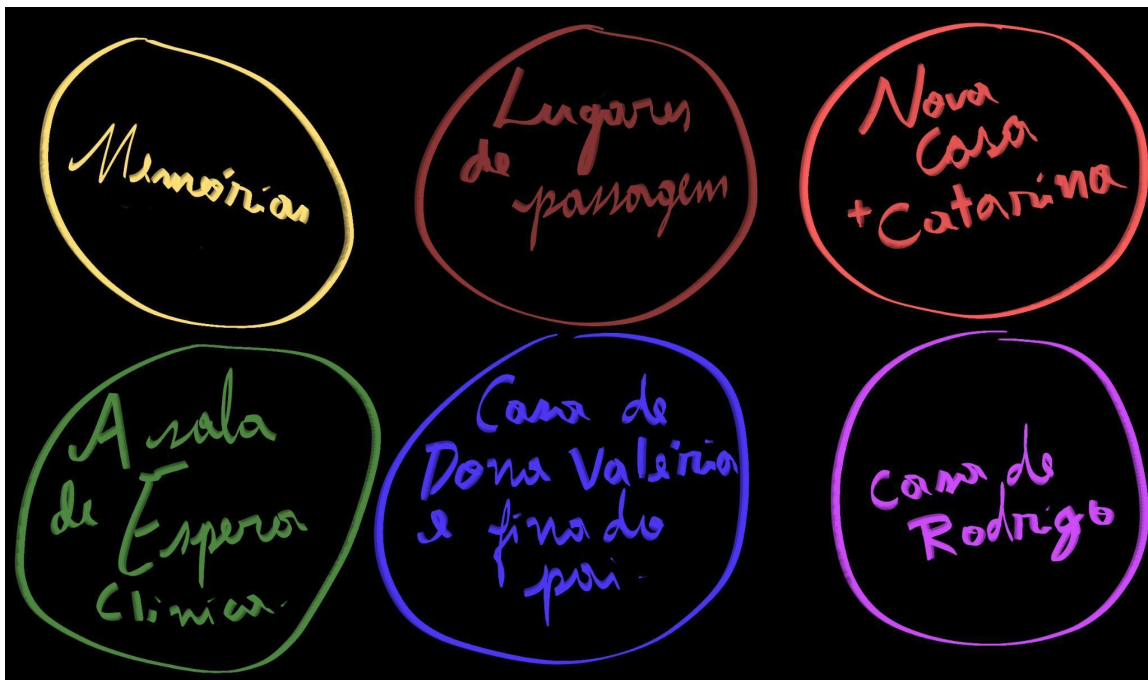 Memórias
Lugares
de passagem
Nova
Casa
+ Catarina
A sala
de Espera
Clinica.
Casa de
Dona Valéria
e finado
pai.
Casa de
Rodrigo